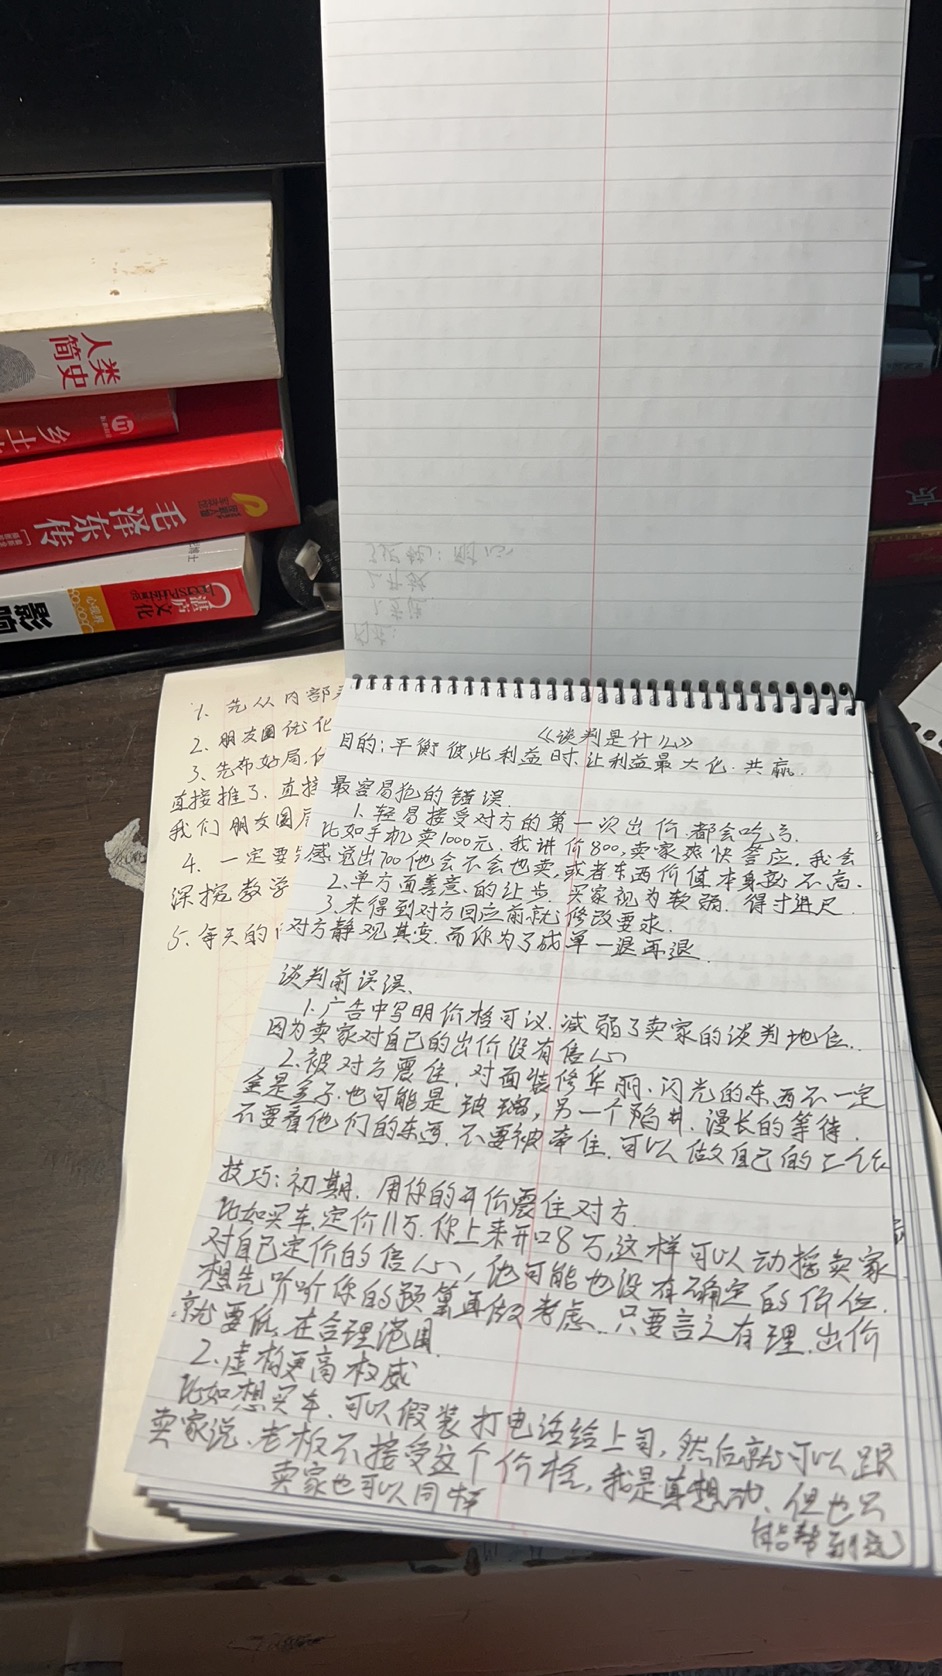 人类
简史
乡土
毛泽东传
湛庐
文化
心理科
影响
1、先从内部
2、朋友圈优化
3、先布好局,
直接推了、直接
我们朋友圈
4、一定要
深挖教学
5、每天的
《谈判是什么》
目的:平衡彼此利益时、让利益最大化、共赢.
最容易犯的错误.
1、轻易接受对方的第一次出价、都会吃亏.
比如手机卖1000元、我讲价800,卖家爽快答应、我会
感觉出700他会不会也卖,或者东西价值本身就不高.
2、单方面善意的让步、买家视为软弱、得寸进尺
3、未得到对方回应前就修改要求.
对方静观其变、而你为了成单一退再退.
谈判前误误、
1、广告中写明价格可议、减弱了卖家的谈判地位..
因为卖家对自己的出价没有信心
2、被对方震住、对面装修华丽、闪光的东西不一定
全是金子、也可能是玻璃,另一个陷井、漫长的等待.
不要看他们的东西、不要被牵住、可以做自己的工作
技巧:初期、用你的开价震住对方.
比如买车、定价11万、你上来开口8万,这样可以动摇卖家
对自己定价的信心,他可能也没有确定的价位.
想先听听你的预算再做考虑..只要言之有理、出价
就要低、在合理范围.
2、虚构更高权威
比如想买车、可以假装打电话给上司,然后就可以跟
卖家说、老板不接受这个价格,我是真想动、但也只
能帮到这)
卖家也可以同样